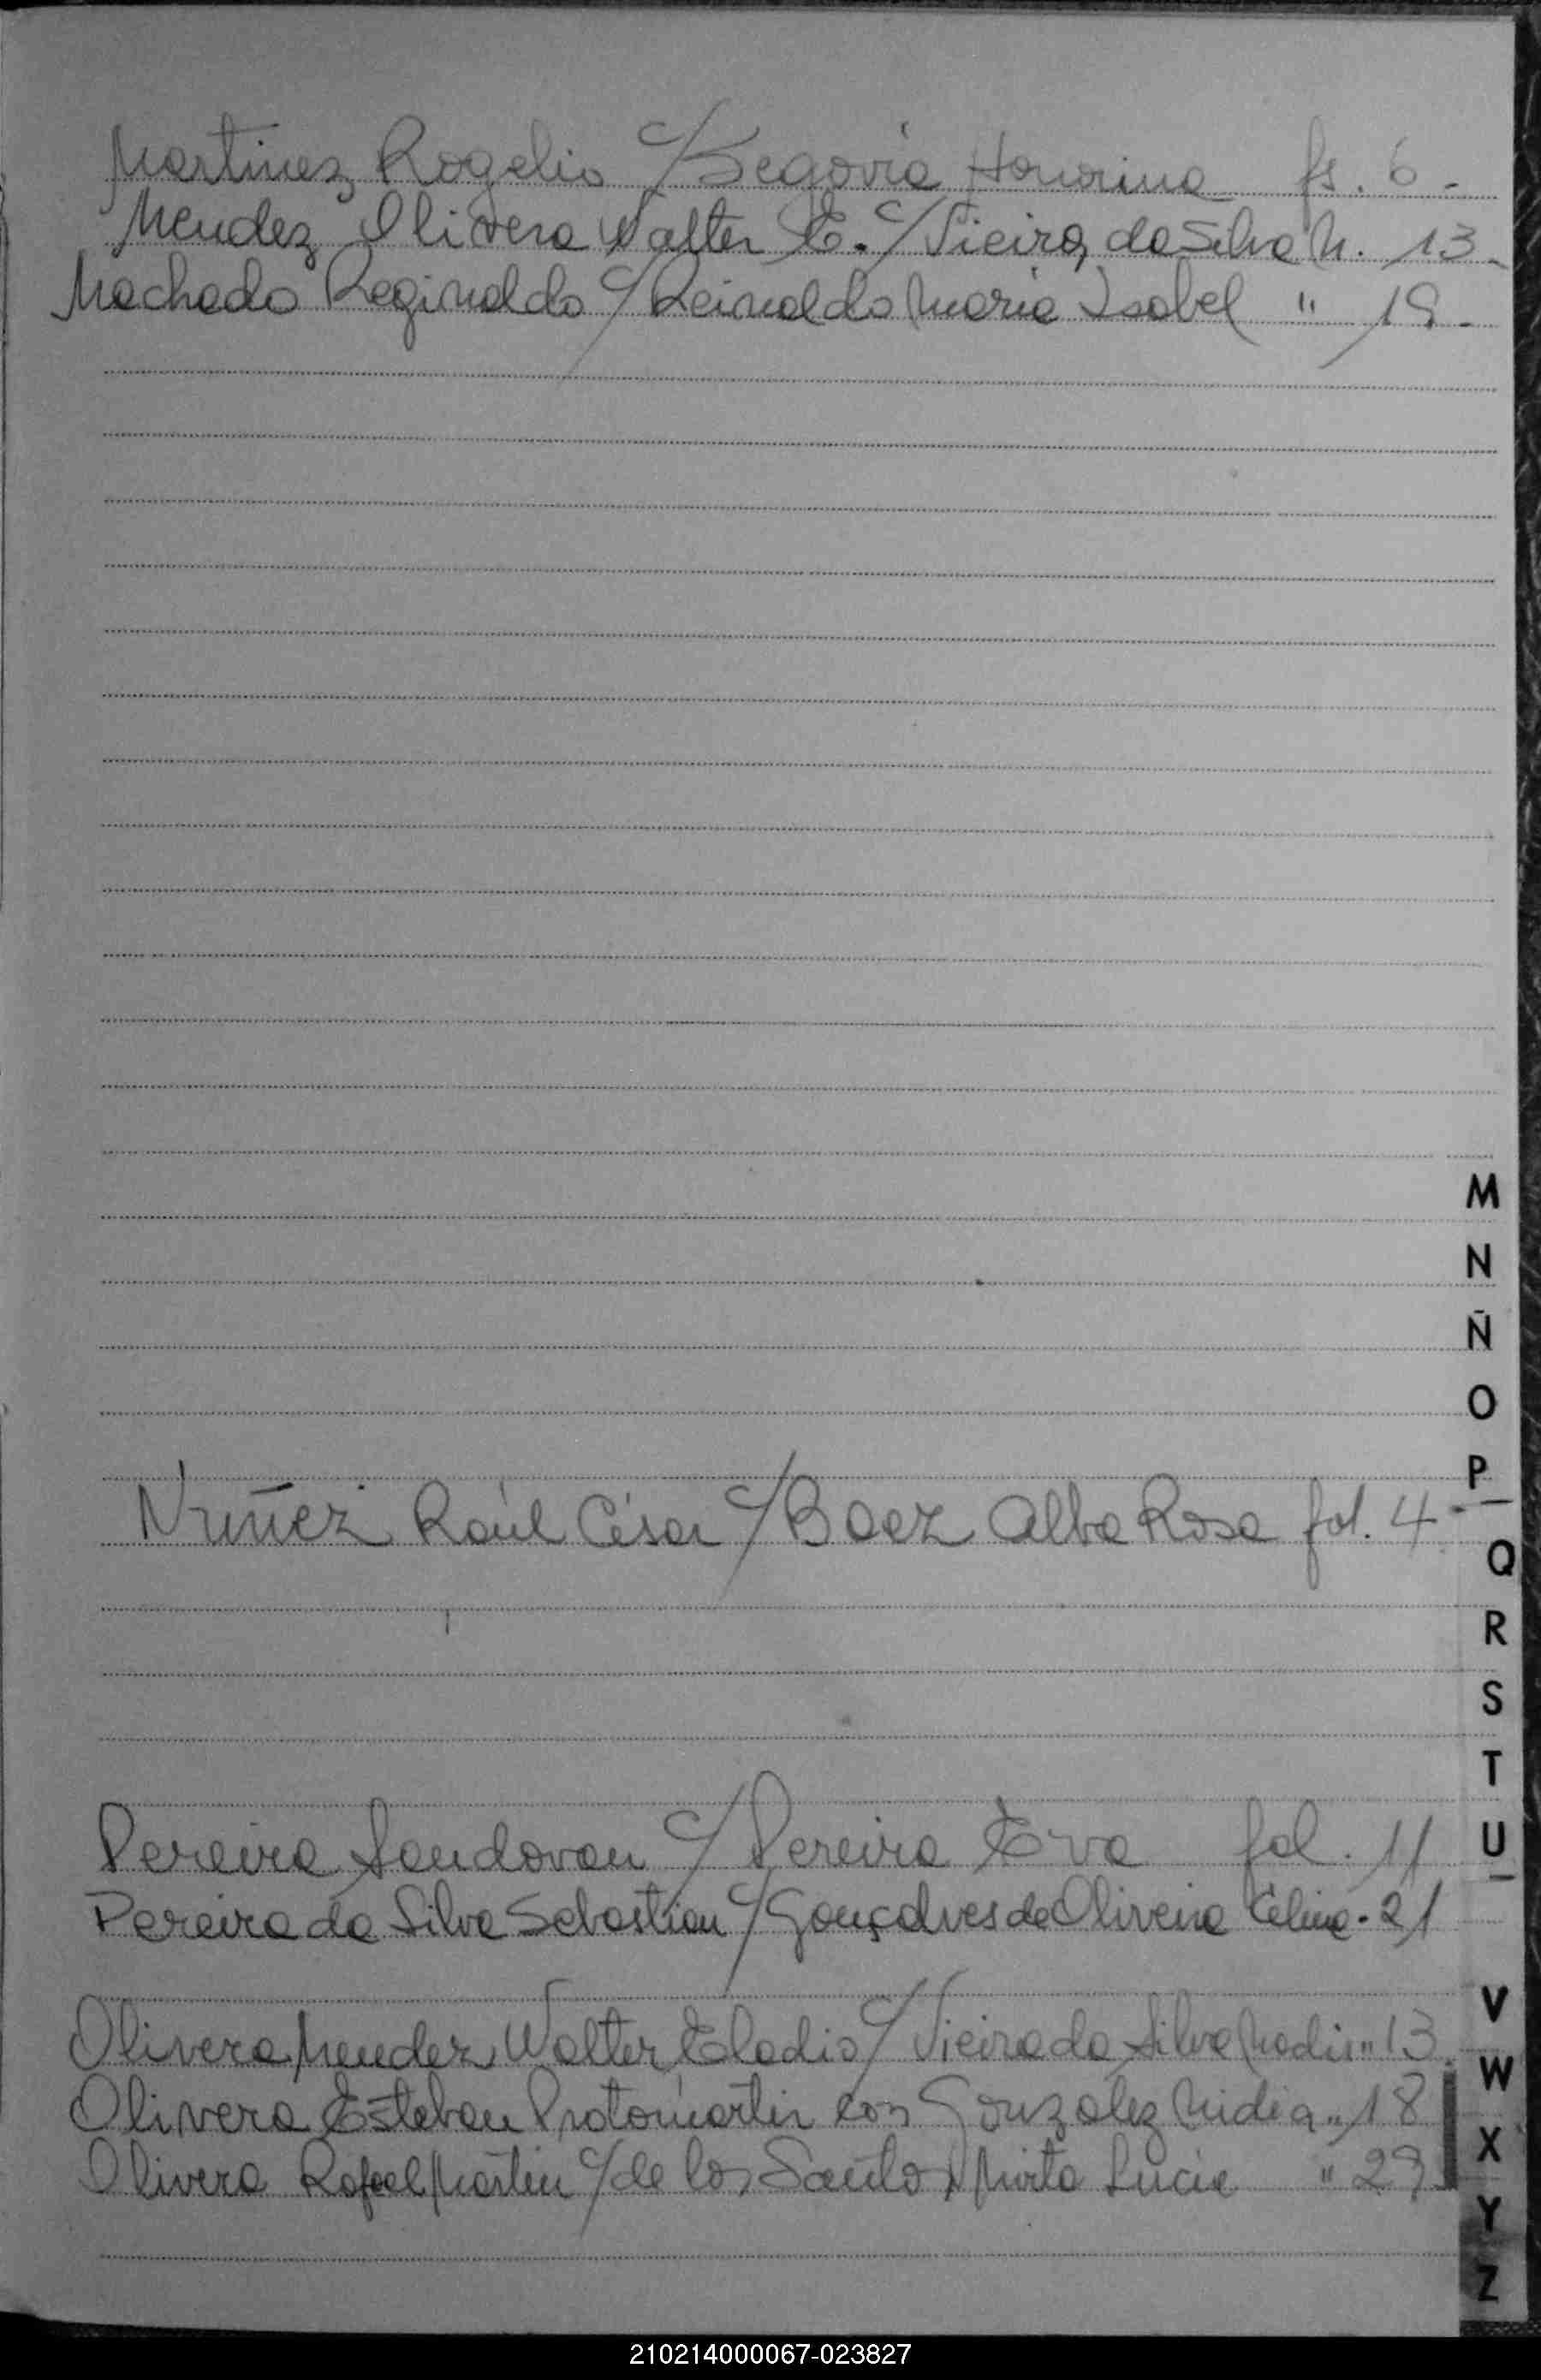 Martinez Rogelio c/ Segovia Honorina fs. 6 -
Mendez Olivera Walter E. c/ Vieira da Silva N. 13 -
Machado Reginaldo c/ Reinaldo Maria Isabel " 19 -
M
N
Ñ
O
P
Nuñez Raúl César c/ Baez Alba Rosa fol. 4 -
Q
R
S
T
Pereira Sandovan c/ Pereira Eva fol. 11
U
Pereira da Silva Sebastian c/ Gonçalves de Oliveira Celina - 21
V
Olivera Mendez Walter Eladio c/ Vieira da Silva Nadir " 13
W
Olivera Esteban Protomartir con Gonzalez Nidia " 18
X
Olivera Rafael Martin c/ de los Santos Mirta Lucia " 29
Y
Z
210214000067-023827